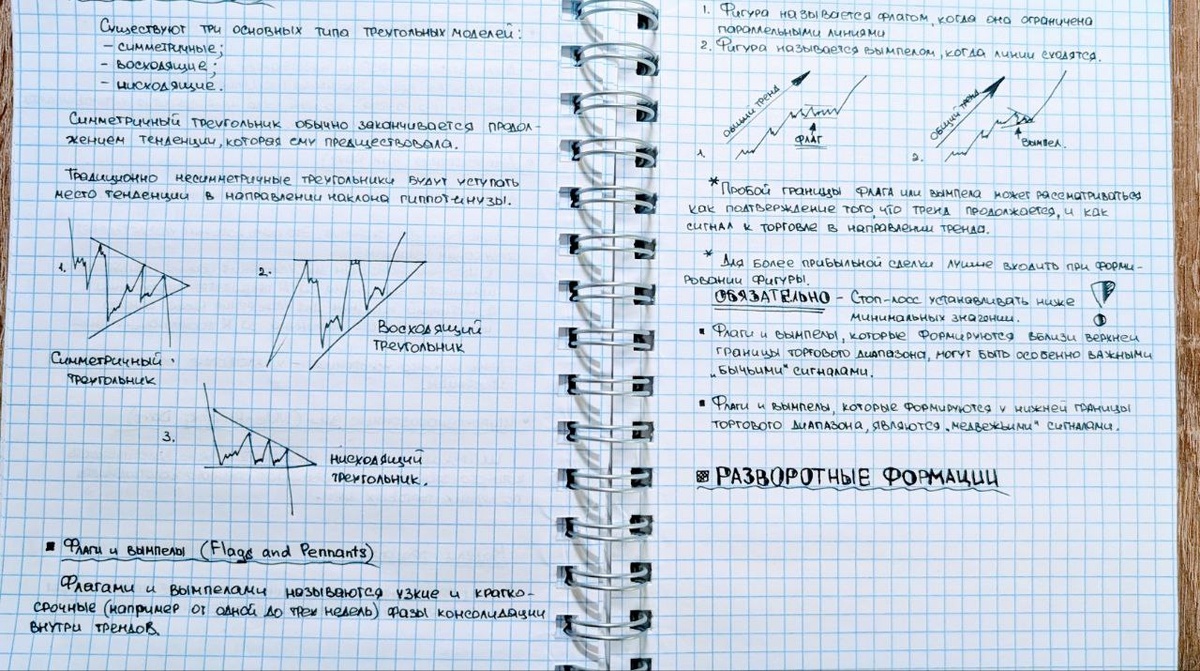 Существуют три основных типа треугольных моделей:
– симметричные;
– восходящие;
– нисходящие.
Симметричный треугольник обычно заканчивается продол-
жением тенденции, которая ему предшествовала.
Традиционно несимметричные треугольники будут уступать
место тенденции в направлении наклона гиппотинузы.
1.
Симметричный
треугольник
2.
Восходящий
треугольник
3.
нисходящий
треугольник.
▪ Флаги и вымпелы (Flags and Pennants)
Флагами и вымпелами называются узкие и кратко-
срочные (например от одной до трех недель) фазы консолидации
внутри трендов.
1. Фигура называется флагом, когда она ограничена
параллельными линиями
2. Фигура называется вымпелом, когда линии сходятся.
общий тренд
флаг
1.
общий тренд
вымпел.
2.
* Пробой границы флага или вымпела может рассматриваться
как подтверждение того, что тренд продолжается, и как
сигнал к торговле в направлении тренда.
* Для более прибыльной сделки лучше входить при форми-
ровании фигуры.
ОБЯЗАТЕЛЬНО – Стоп-лосс устанавливать ниже
минимальных значений.
▪ Флаги и вымпелы, которые формируются вблизи верхней
границы торгового диапазона, могут быть особенно важными
„бычьими" сигналами.
▪ Флаги и вымпелы, которые формируются у нижней границы
торгового диапазона, являются „медвежьими" сигналами.
РАЗВОРОТНЫЕ ФОРМАЦИИ